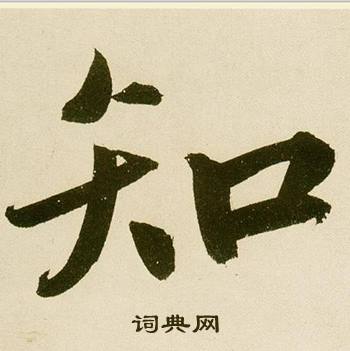 知
词典网